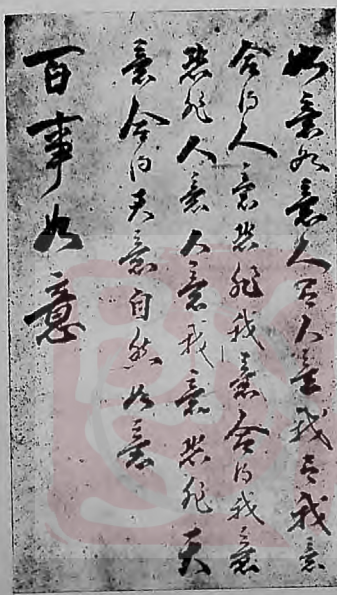 如意如意人有人意我有我意
合得人意恐非我意合得我意
恐非人意人意我意恐非天
意合得天意自然如意
百事如意